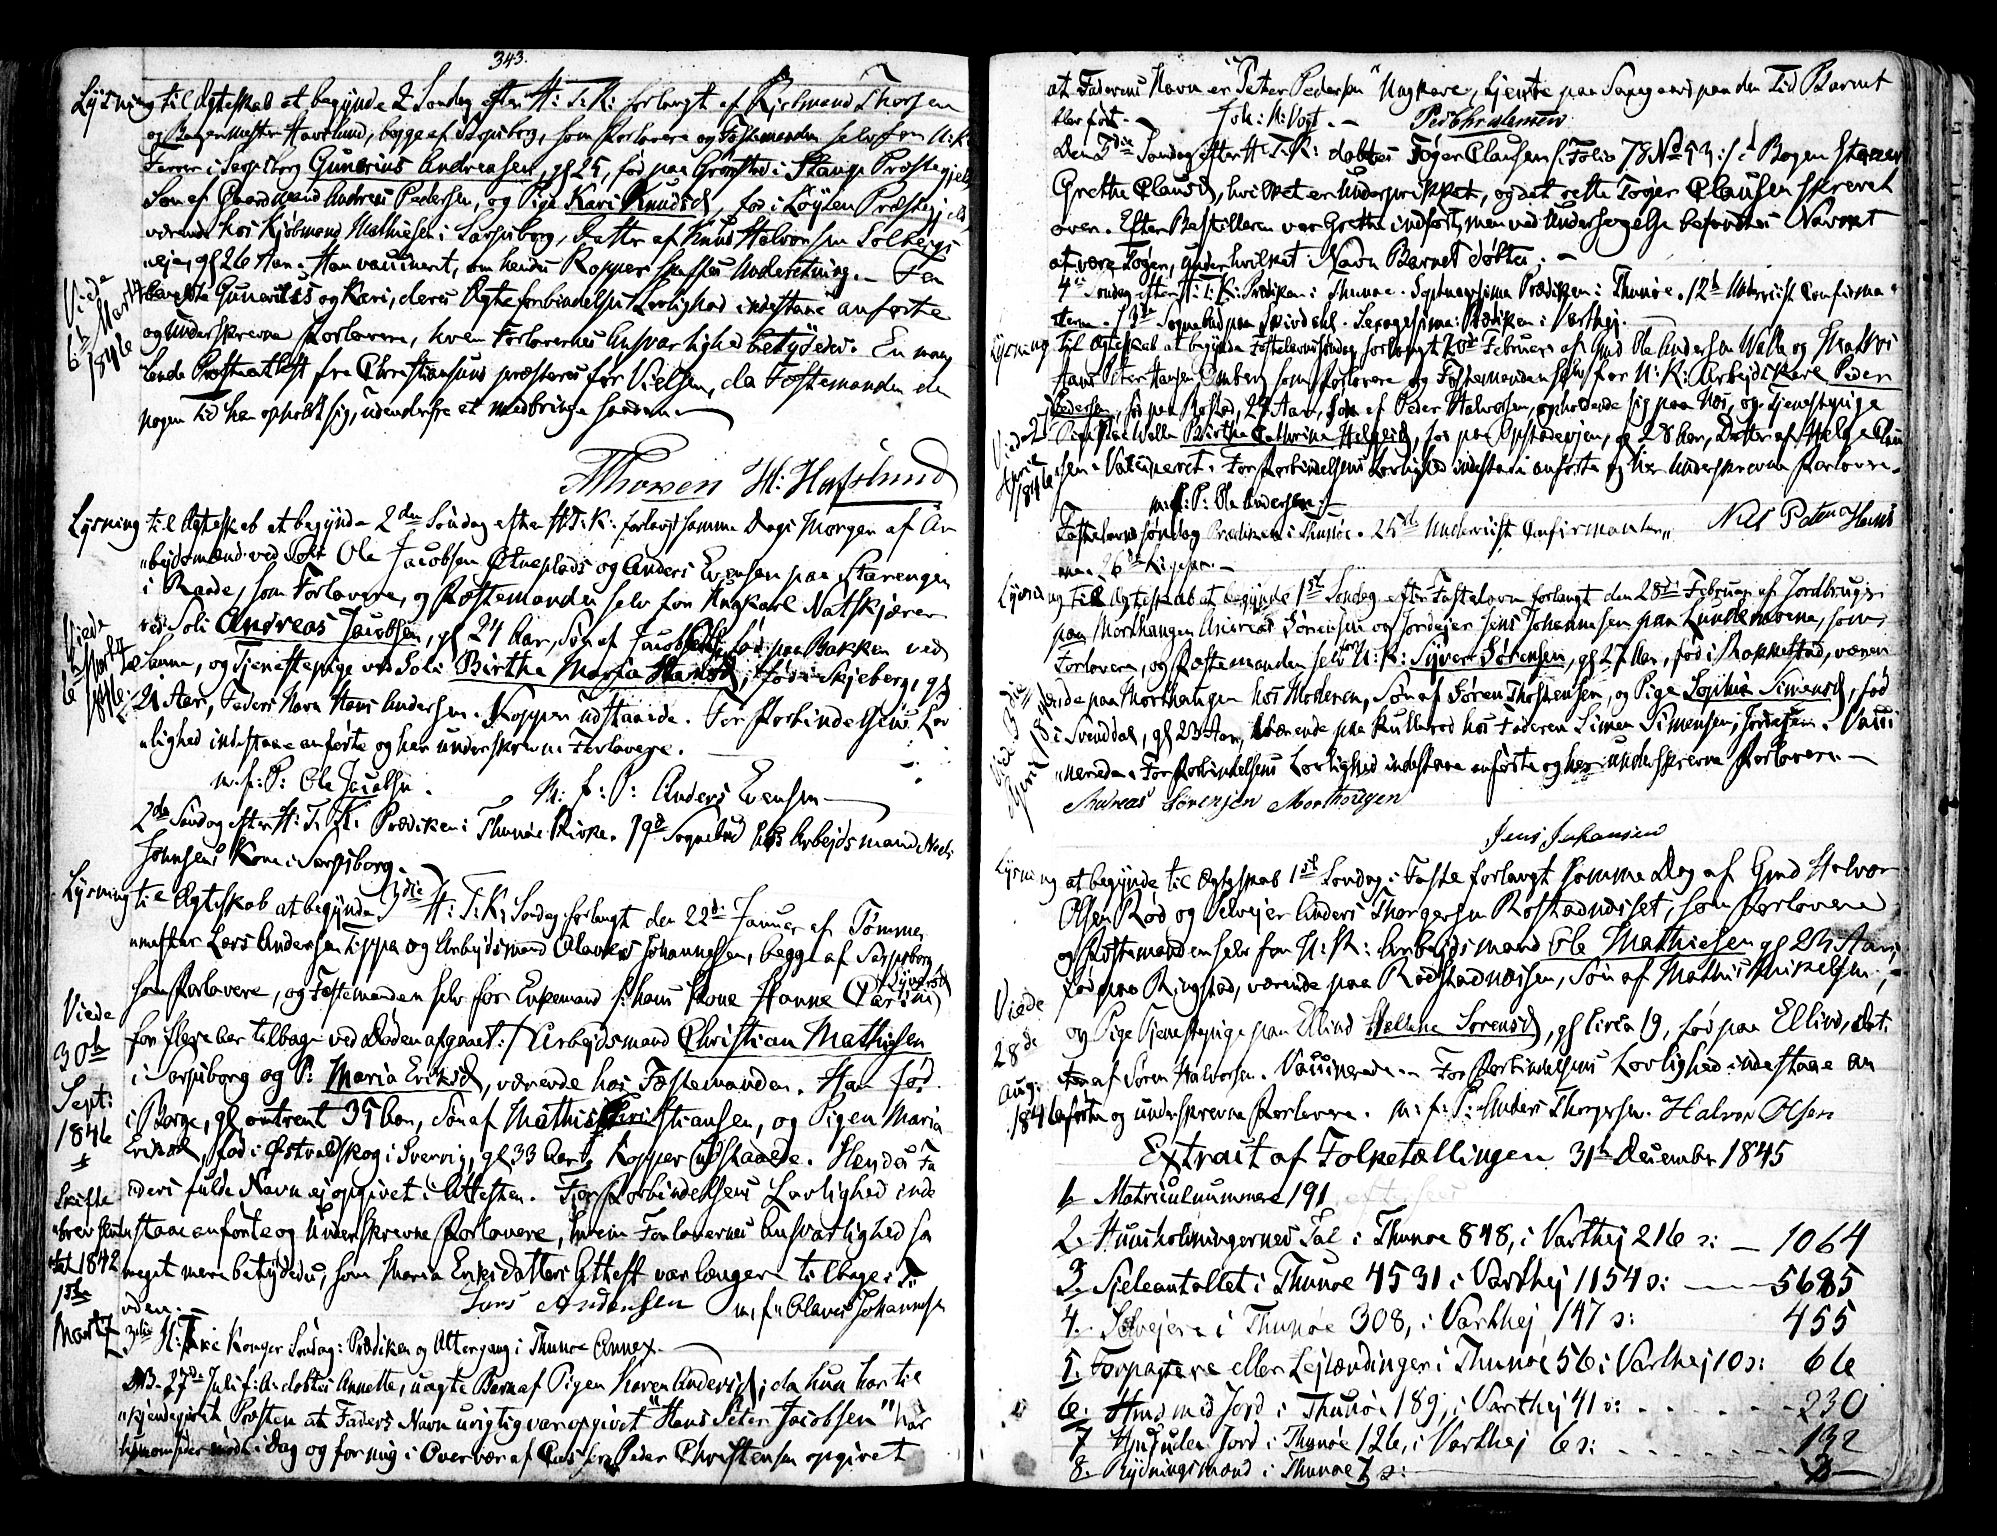 343.
Lysning til Ægteskab at begynde 2 Søndag efter H: T: K: forlangt af Kjøbmand Thorsen
og Bagermester Havslund, begge af Sarpsborg, som Forlovere og Fæstemanden selv for U: K:
i Sarpsborg Gunerius Andreasen, gl 25, fød paa i Stange Præstegjeld
Søn af Andreas Pedersen, og Pige Kari Knudsd, fød i Løyten Præstegjeld
værende hos Kjøbmand Mathiesen i Sarpsborg, Datter af Knud Halvorsen Solbergs
eje, gl 26 Aar. Han vaccineret, om hendes Kopper skaffes Underretning. — For
Gunerius og Kari, deres Ægteforbindelses Lovlighed indestaae anførte
og underskrevne Forlovere, hvem Forlovernes Ansvarlighed betydedes. En mang
lende Præsteattest fra Christiansund præsteres før Vielsen, da Fæstemanden der
nogen Tid har opholdt sig, uden at medbringe saadan.
Viede
6te Martz
1846
Thorsen H: Hafslund
Lysning til Ægteskab at begynde 2den Søndag efter H: T: K: forlangt samme Dags Morgen af Ar
"bejdsmænd ved Ole Jacobsen Olneplads og Anders Evensen paa Starengen
i Raade, som Forlovere, og Fæstemanden selv for Ungkarl Natskjærer
ved Soli Andreas Jacobsen, gl 24 Aar, Søn af Jacob fød paa Bakken ved
Samme, og Tjenestepige ved Soli Birthe Maria Hansd, fød i Skjeberg, gl
21 Aar, Faders Navn Hans Andersen. Kopper udstaaede. For Forbindelsens Lov
"lighed indestaae anførte og her underskrevne Forlovere.
Viede
6te Martz
1846
m. f: P: Ole Jacobsen.
M: f: P: Anders Evensen
2den Søndag efter H: T: K: Prædiken i Thunøe Kirke. 19de Sognebud hos Arbejdsmand
Johnsens Kone i Sarpsborg.
Lysning til Ægteskab at begynde 3die H: T: K: Søndag forlangt den 22de Januar af Tømmer
mester Lars Andersen Tippa og Arbejdsmand Olaves Johannesen, begge af Sarpsborg
som Forlovere, og Fæstemanden selv for Enkemand /: hans Kone Hanne Carine Syversd
for flere Aar tilbage ved Døden afgaaet :/ Arbejdsmand Christian Mathisen
i Sarpsborg og P: Maria Eriksd, værende hos Fæstemanden. Han fød
i Borge, gl omtrent 35 Aar, Søn af Mathis Christiansen, og Pigen Maria
Eriksd, fød i Østvalskog i Sverrig, gl 33 Aar, Kopper udstaaede. Hendes Fa
ders fulde Navn ej opgivet i Attesten. For Forbindelsens Lovlighed inde
staae anførte og Underskrevne Forlovere, hvem Forlovernes Ansvarlighed saa
meget mere betydedes, som Maria Eriksdatters Attest var længere tilbage i Ti
den.
Viede
30te
Sept:
1846
Skifte
brev
1842
1ste
Martz
Lars Andersen m, f: Olaves Johannesen
3die H: Tre Konger Søndag: Prædiken og Altergang i Thunøe Annex.
NB. 27de Juli f: A: døbtes Annette, uægte Barn af Pigen Karen Andersd; da hun har til
"kjendegivet Præsten at Faders Navn urigtig var opgivet "Hans Peter Jacobsen" har
hun i Dag og for mig i Overvær af Peder Christensen opgivet
at Faderens Navn er "Peter Pedersen" Ungkarl, tjente paa den Tid Barnet
blev født. — Joh: N: Vogt. — Ped Christensen
Den 3die Søndag efter H: T: K: døbtes Tøger Clausen /: Folio 78 No 53 :/ i Bogen staaer
Grethe Clausd, hvilket er Underprikket, og det rette Tøger Clausen skrevet
over. Efter Bestilleren var Grethe indført, men ved Undersøgelse befandtes Navnet
at være Tøger, under hvilket Navn Barnet døbtes. —
4de Søndag efter H: T: K: Prædiken i Thunøe. Septuagesima Prædiken i Thunøe. 12te Underviist Confirman
terne. 13de Sognebud paa . Sexagesima: Prædiken i Varthej.
Lysning til Ægteskab at begynde Fastelavnssøndag forlangt 20de Februar af Gmd Ole Andersen Walle og
Hans Peter Hansen som Forlovere og Fæstemanden selv for U: K: Arbejdskarl Peder
Pedersen, fød paa Rostad, 29 Aar, Søn af Peder Halvorsen, opholdende sig paa Næs, og Tjenestepige
Walle Birthe Cathrine Helgesd, fød paa Opstadvejen, gl 28 Aar, Datter af Helge
sen. Vaccineret. For Forbindelsens Lovlighed indestaae anførte og her Underskrevne Forlovere.
Viede 2den
April
1846
m. f: P: Ole Andersen
Fastelavnssøndag Prædiken i Thunøe. 25de Underviist Confirmanter
26de Ligesaa. —
Lysning til Ægteskab at begynde 1ste Søndag efter Fastelavn forlangt den 28de Februar af Jordbruger
paa Morthaugen Andreas Sørensen og Jordejer Jens Johannesen paa Lundehavene, som
Forlovere, og Fæstemanden selv for U: K: Syver Sørensen, gl 27 Aar, fød i Rakkestad, væren
de paa Morthaugen hos Moderen, Søn af Søren Thostensen, og Pige Sophie Simensd, fød
i Svenddal, gl 23 Aar, værende paa Kullerød hos Faderen Simen Simensen, Jordejer. Vacci
nerede. For Forbindelsens Lovlighed indestaae anførte og her underskrevne Forlovere.
Andreas Sørensen Morthaugen
Jens Johansen
Lysning at begynde til Ægteskab 1ste Søndag i Faste forlangt Samme Dag af Gmd Halvor
Olsen Rød og Selvejer Anders Thorgersen Rostadnæsset, som Forlovere
og Fæstemanden selv for U: K: Arbejdsmand Ole Mathiesen gl 23 Aar,
fød paa Ringstad, værende paa Rodstadnæssen, Søn af Mathis Mikelsen,
og Pige Tjenestepige paa Ellind Helene Sørensd, gl circa 19, fød paa Ellind, Dat:
ter af Søren Halvorsen. Vaccinerede. For Forbindelsens Lovlighed indestaae an
førte og underskrevne Forlovere. m: f: P: Anders Thorgersen. Halvor Olsen
Viede
28de
Aug:
1846
Extract af Folketællingen 31te December 1845
1. Matriculnummere 191
2. Huusholdningernes Tal i Thunøe 848, i Varthej 216 ɔ: — 1064
3. Sjeleantallet i Thunøe 4531 i Varthej 1154 ɔ: — 5685
4. Selvejere i Thunøe 308, i Varthej 147 ɔ: 455
5. Forpagtere eller Lejlændinger i Thunøe 56 i Varthej 10 ɔ: 66
6. Hmd med Jord i Thunøe 189, i Varthej 41 ɔ: 230
7 Hmd uden Jord i Thunøe 126, i Varthej 6 ɔ: 132
8. Rydningsmænd i Thunøe